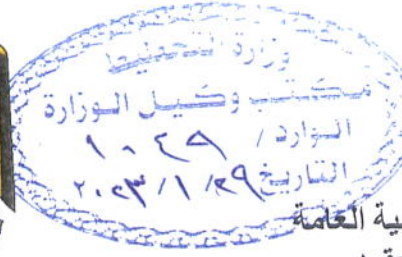 وزارة التخطيط
مكتب وكيل الوزارة
الوارد / ١٠٤٩
التاريخ ٢٩ / ١ / ٢٠٢٣
ية العامة